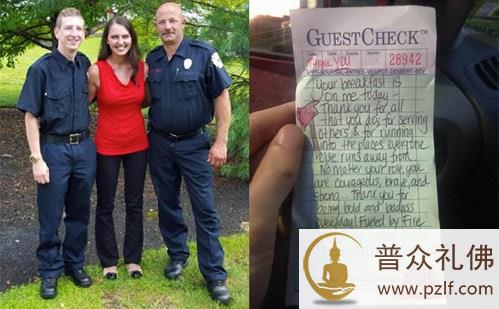 GUESTCHECK™
Thank You
28942
Your breakfast is
on me today -
Thank you for all
that you do; for serving
others & for running
into the places everyone
else runs away from.
No matter your role, you
are courageous, brave, and
strong... Thank you for
being bold and badass
everyday! Fueled by Fire
普众礼佛
www.pzlf.com